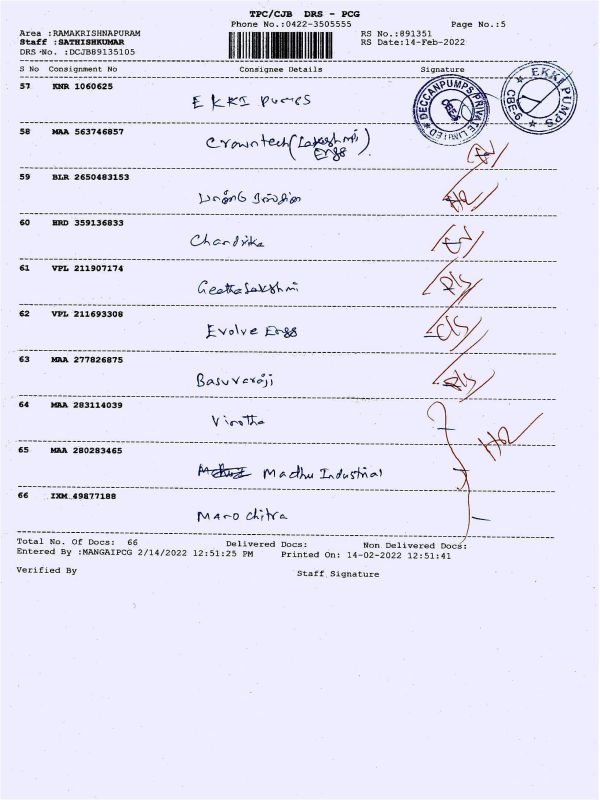 TPC/CJB DRS - PCG
Phone No.:0422-3505555 Page No.:5
Area :RAMAKRISHNAPURAM RS No.:891351
Staff :SATHISHKUMAR RS Date:14-Feb-2022
DRS No. :DCJB89135105
S No Consignment No Consignee Details Signature
57 KNR 1060625
EKKI PUMPS
DECCANPUMPS PRIVATE LIMITED
EKKI PUMPS CBE-9
58 MAA 563746857
Crowntech (Lakshmi
Engg)
59 BLR 2650483153
60 HRD 359136833
Chandrika
61 VPL 211907174
Geethalakshmi
62 VPL 211693308
Evolve Engg
63 MAA 277826875
Basuvaraji
64 MAA 283114039
Vinotha
65 MAA 280283465
Madhu Industrial
66 IXM 49877188
Mano Chitra
Total No. Of Docs: 66 Delivered Docs: Non Delivered Docs:
Entered By :MANGAIPCG 2/14/2022 12:51:25 PM Printed On: 14-02-2022 12:51:41
Verified By Staff Signature